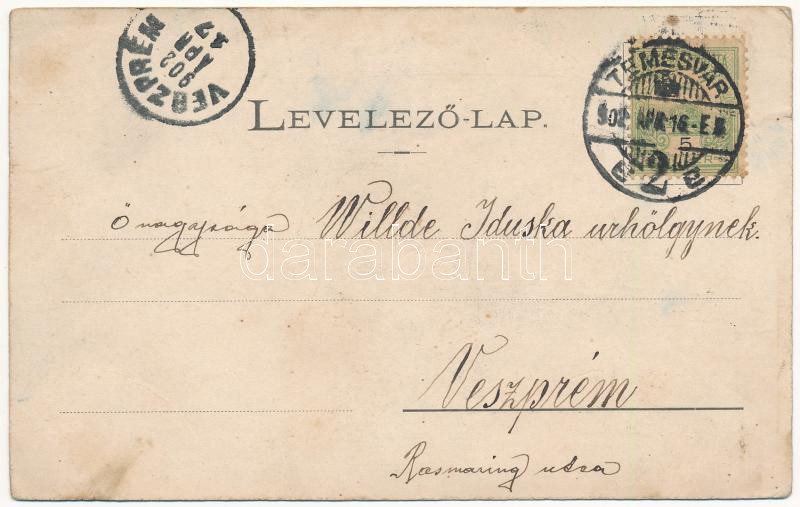 VESZPRÉM
902
APR
17
LEVELEZŐ-LAP.
TEMESVÁR
902 APR. 16
5
2
Ő nagysága Willde Iduska urhölgynek.
darabanth
Veszprém
Rosmaring utca